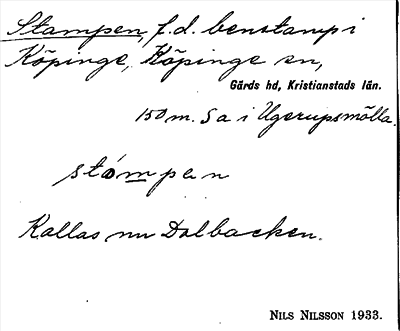 Stampen, f.d. benstamp i
Köpinge, Köpinge sn,
Gärds hd, Kristianstads län.
150 m. S a i Ugerupsmölla.
stómpen
Kallas nu Dalbacken.
NILS NILSSON 1933.